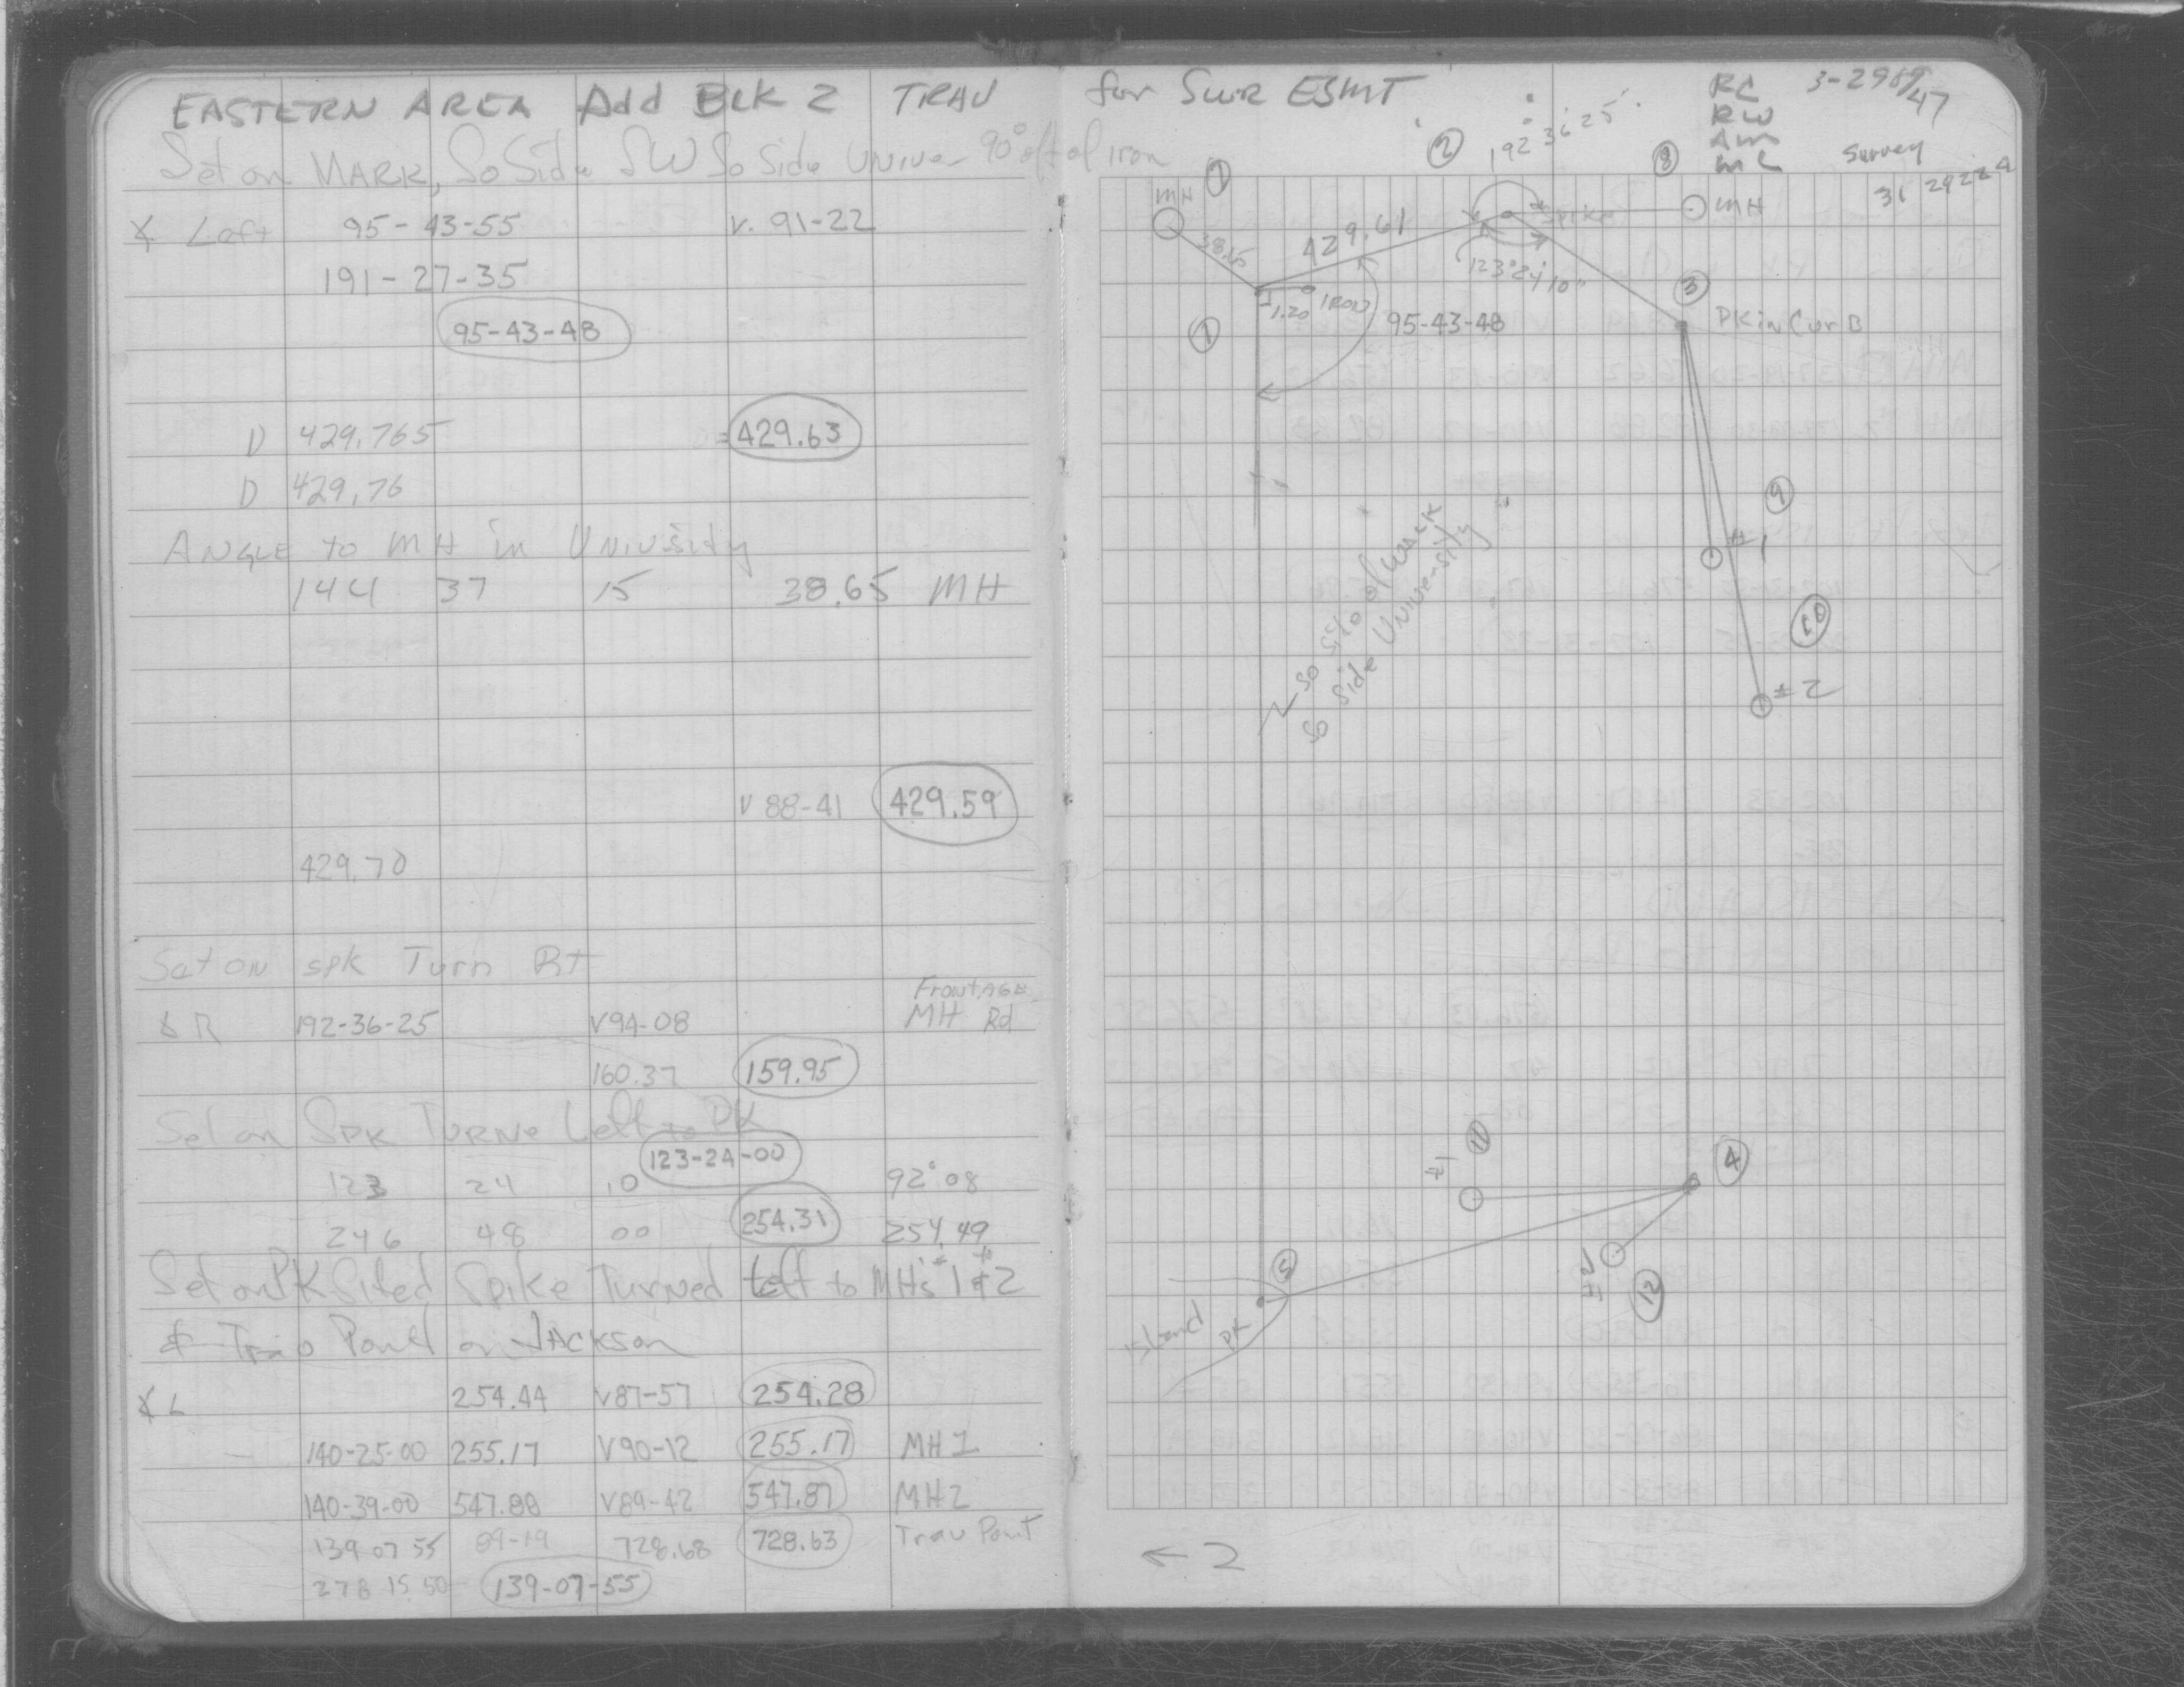 EASTERN AREA Add BLK 2 TRAV for SWR ESMT
Set on MARK, So Side SW So Side Univer 90° off of iron
∡ Left 95-43-55 V. 91-22
191-27-35
95-43-48
D 429.765 =429.63
D 429.76
ANGLE to MH in University
144 37 15 38.65 MH
V 88-41 429.59
429.70
Set on spk Turn Rt
Frontage
∡ R 192-36-25 V94-08 MH Rd
160.37 159.95
Set on SPK TURNe Left to PK
123-24-00
123 24 10 92°08
246 48 00 254.31 254.49
Set on PK Sited Spike Turned Left to MH's #1 & #2
& Trav Pont on JACKSON
∡ L 254.44 V87-57 254.28
140-25-00 255.17 V90-12 255.17 MH 1
140-39-00 547.88 V89-42 547.87 MH2
139 07 55 89-19 728.68 728.63 Trav Pont
278 15 50 139-07-55
RC
RW
Am
mc
Survey
31 29224
2
192 36 25
8
MH
7
MH
38.65
429.61
spike
123°24'10"
3
PK in Curb
1
1.20 IRON
95-43-48
So Side of Walk
So Side University
9
#1
10
#2
11
#1
4
5
12
Island
PK
← 2